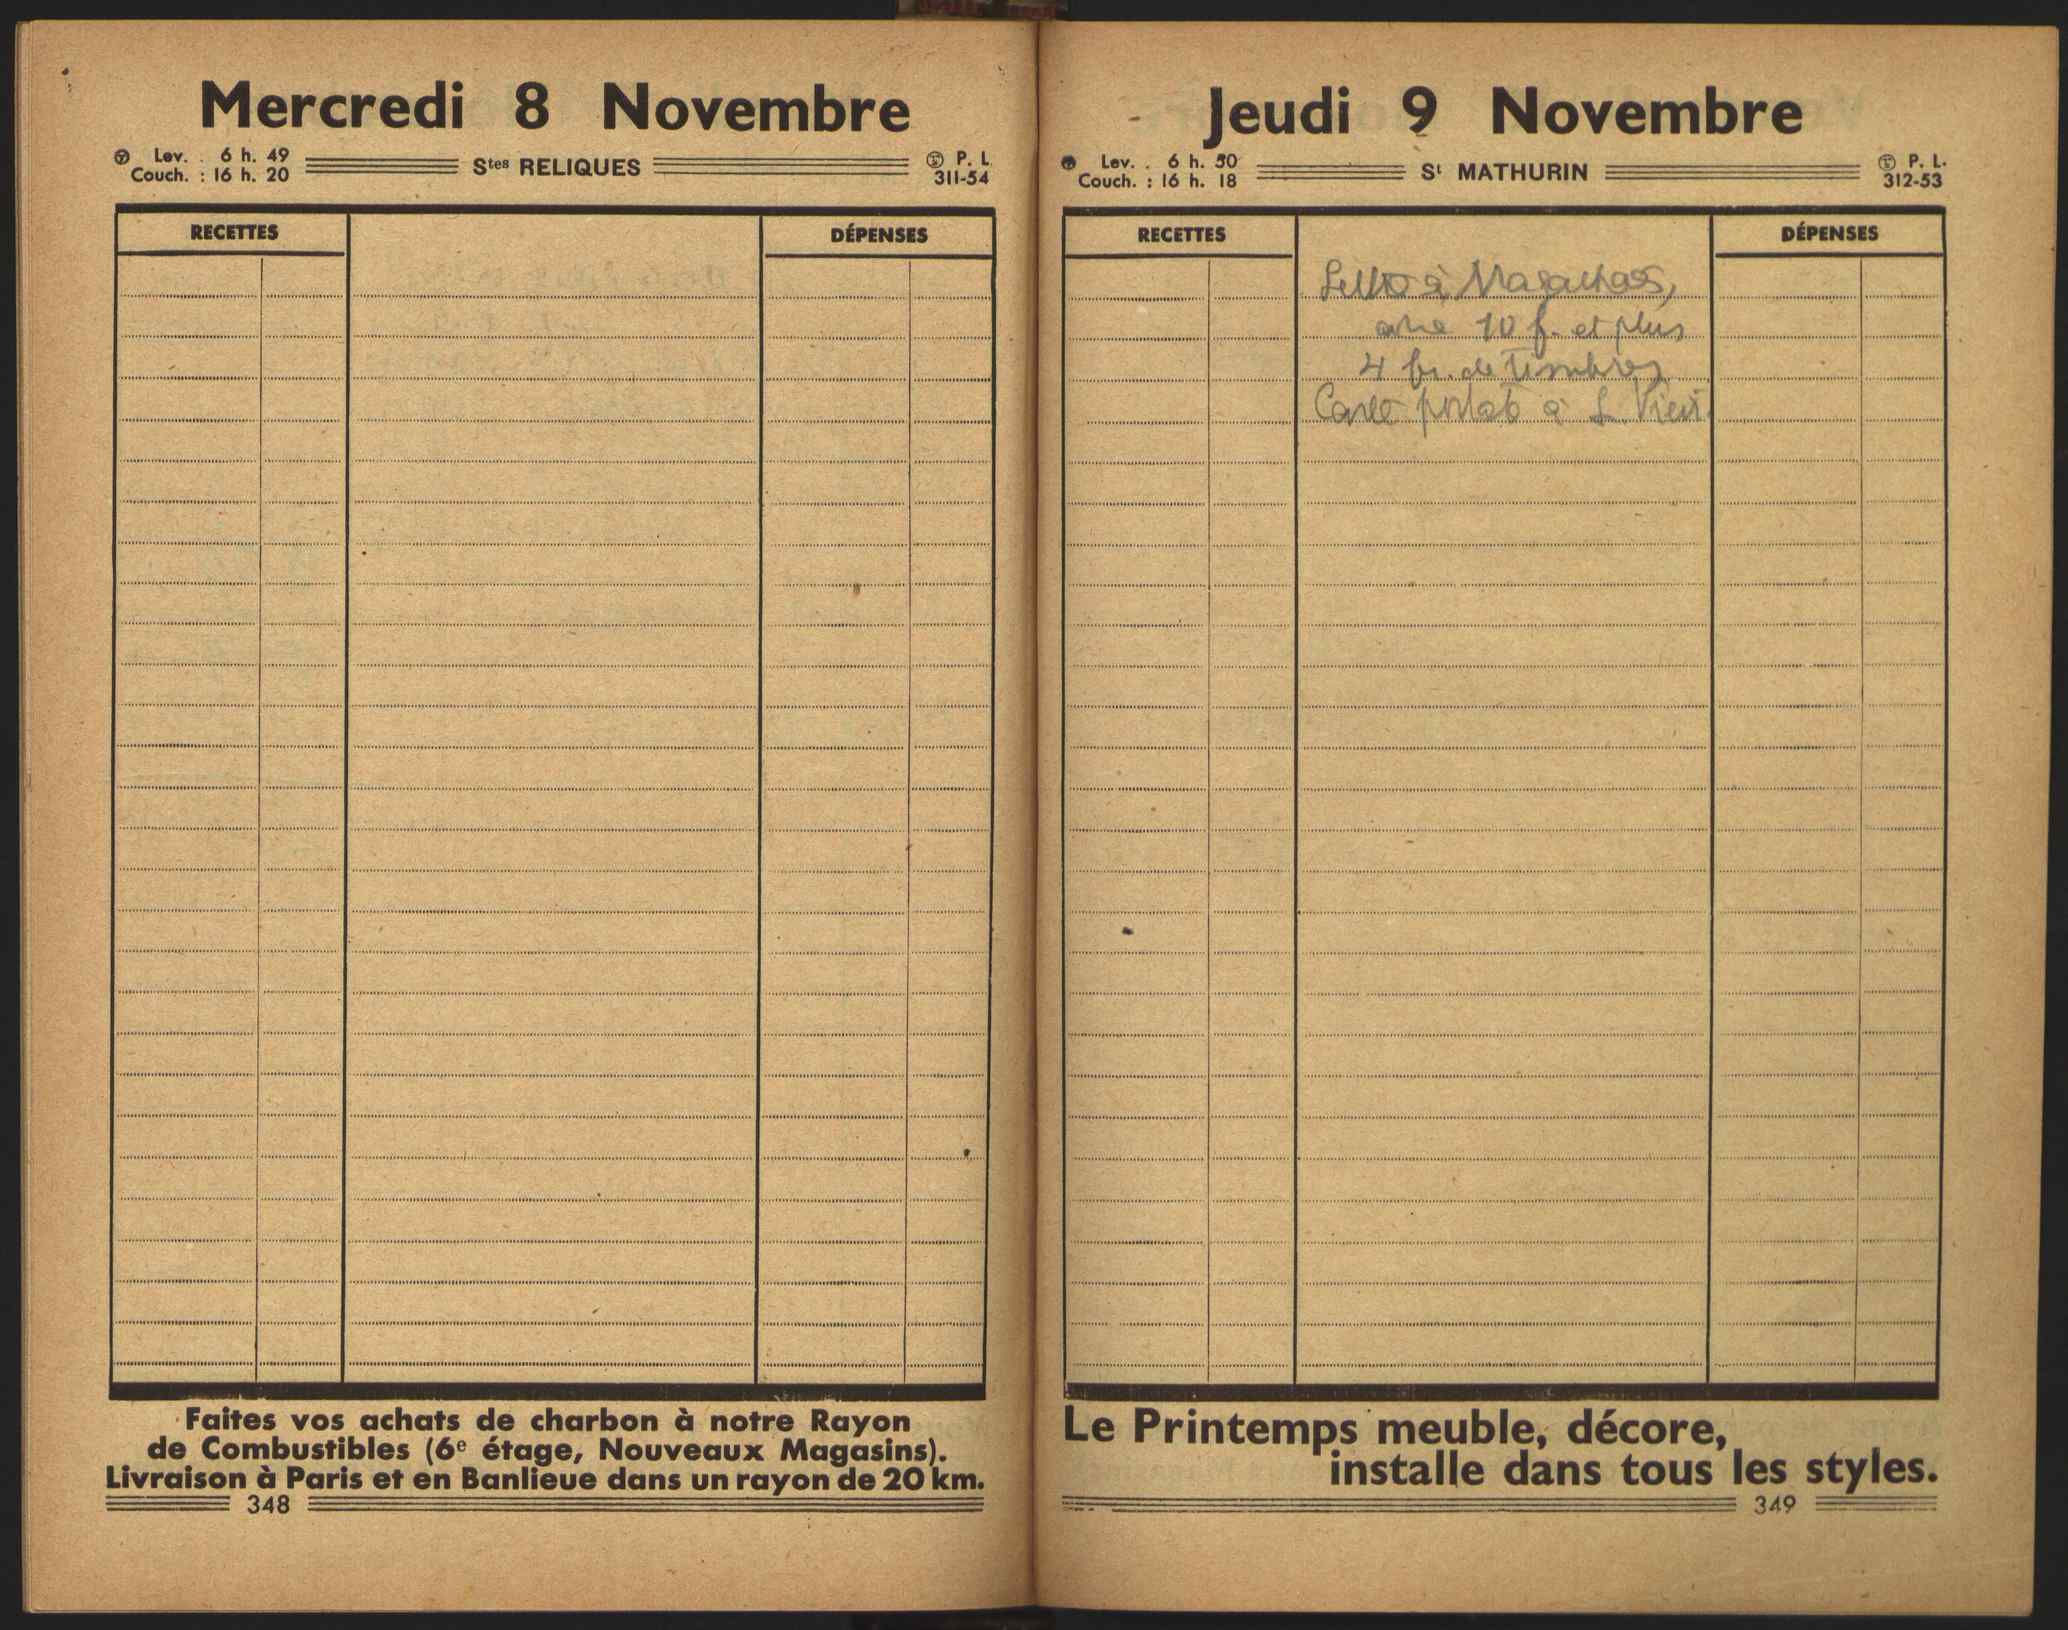 Mercredi 8 Novembre
Lev. . 6 h. 49
Couch. : 16 h. 20
Stes RELIQUES
P. L
311-54
RECETTES
DÉPENSES
Faites vos achats de charbon à notre Rayon
de Combustibles (6e étage, Nouveaux Magasins).
Livraison à Paris et en Banlieue dans un rayon de 20 km.
348
Jeudi 9 Novembre
Lev. . 6 h. 50
Couch. : 16 h. 18
St MATHURIN
P. L.
312-53
RECETTES
DÉPENSES
Lettre à Magalhaes,
10 f. et plus
4 fr. de timbres
Carte postale à L.
Le Printemps meuble, décore,
installe dans tous les styles.
349